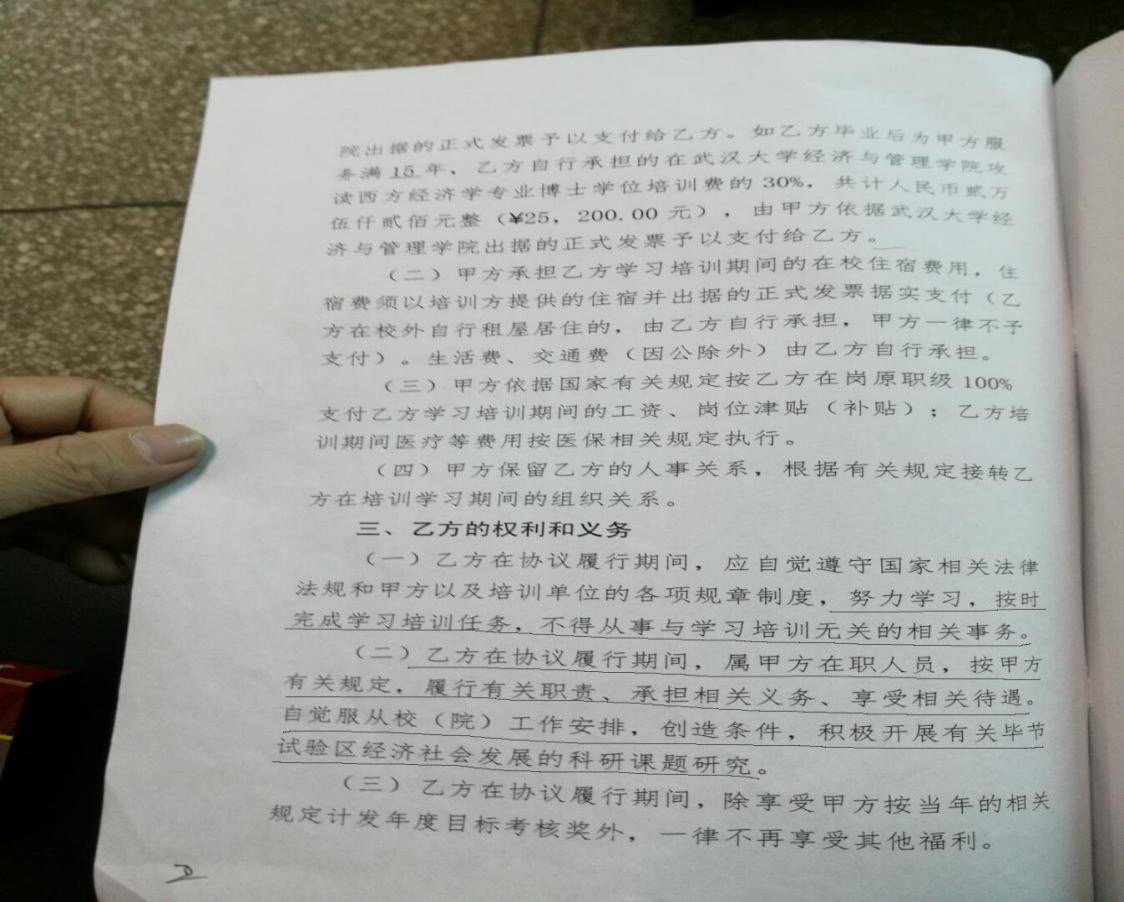 院出据的正式发票予以支付给乙方。如乙方毕业后为甲方服
务满15年，乙方自行承担的在武汉大学经济与管理学院攻
读西方经济学专业博士学位培训费的30%，共计人民币贰万
伍仟贰佰元整（¥25，200.00元），由甲方依据武汉大学经
济与管理学院出据的正式发票予以支付给乙方。
（二）甲方承担乙方学习培训期间的在校住宿费用，住
宿费须以培训方提供的住宿并出据的正式发票据实支付（乙
方在校外自行租屋居住的，由乙方自行承担，甲方一律不予
支付）。生活费、交通费（因公除外）由乙方自行承担。
（三）甲方依据国家有关规定按乙方在岗原职级100%
支付乙方学习培训期间的工资、岗位津贴（补贴）；乙方培
训期间医疗等费用按医保相关规定执行。
（四）甲方保留乙方的人事关系，根据有关规定接转乙
方在培训学习期间的组织关系。
三、乙方的权利和义务
（一）乙方在协议履行期间，应自觉遵守国家相关法律
法规和甲方以及培训单位的各项规章制度，努力学习，按时
完成学习培训任务，不得从事与学习培训无关的相关事务。
（二）乙方在协议履行期间，属甲方在职人员，按甲方
有关规定，履行有关职责、承担相关义务、享受相关待遇。
自觉服从校（院）工作安排，创造条件，积极开展有关毕节
试验区经济社会发展的科研课题研究。
（三）乙方在协议履行期间，除享受甲方按当年的相关
规定计发年度目标考核奖外，一律不再享受其他福利。